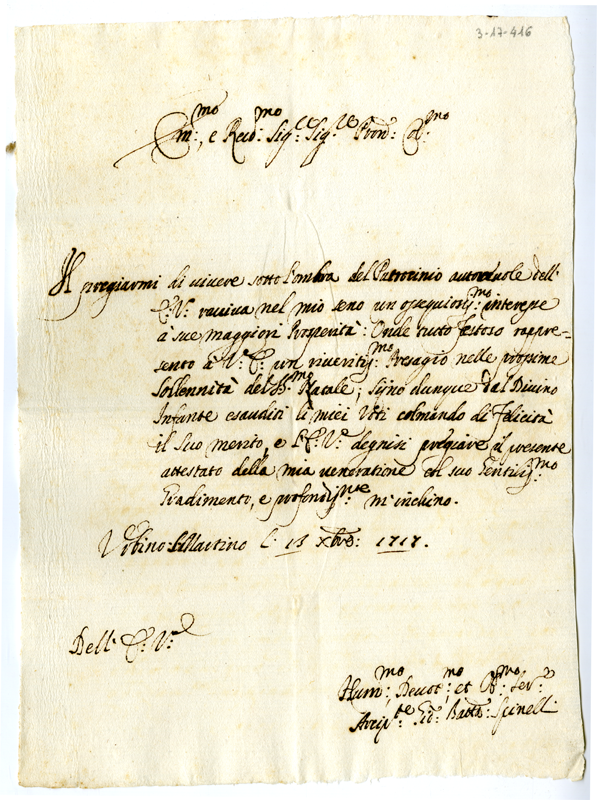 3-17-416
Em:mo, e Reud:mo Sig:re Sig:re Pron: C:mo
Il pregiarmi di vivere sotto l'ombra del Patrocinio autoreuole dell'
E: V: rauuiua nel mio seno un ossequiosiss:mo interesse
à sue maggiori Prosperità: Onde tutto festoso rappre-
sento à V: E: un riueritiss:mo Presagio nelle prossime
Sollennità del SS:mo Natale; siano dunque dal Diuino
Infante esauditi li miei Voti colmando di felicità
il Suo merito, e l'E: V: degnisi pregiare il presente
attestato della mia ueneratione col suo Gentiliss:mo
Gradimento, e profondiss:nte m'inchino.
Urbino S. Martino li 13 Xbre: 1717.
Dell' E: V:
Hum:mo Deuot:mo et Ob:mo Ser:e
Arcip:te Gio: Batta: Spinelli